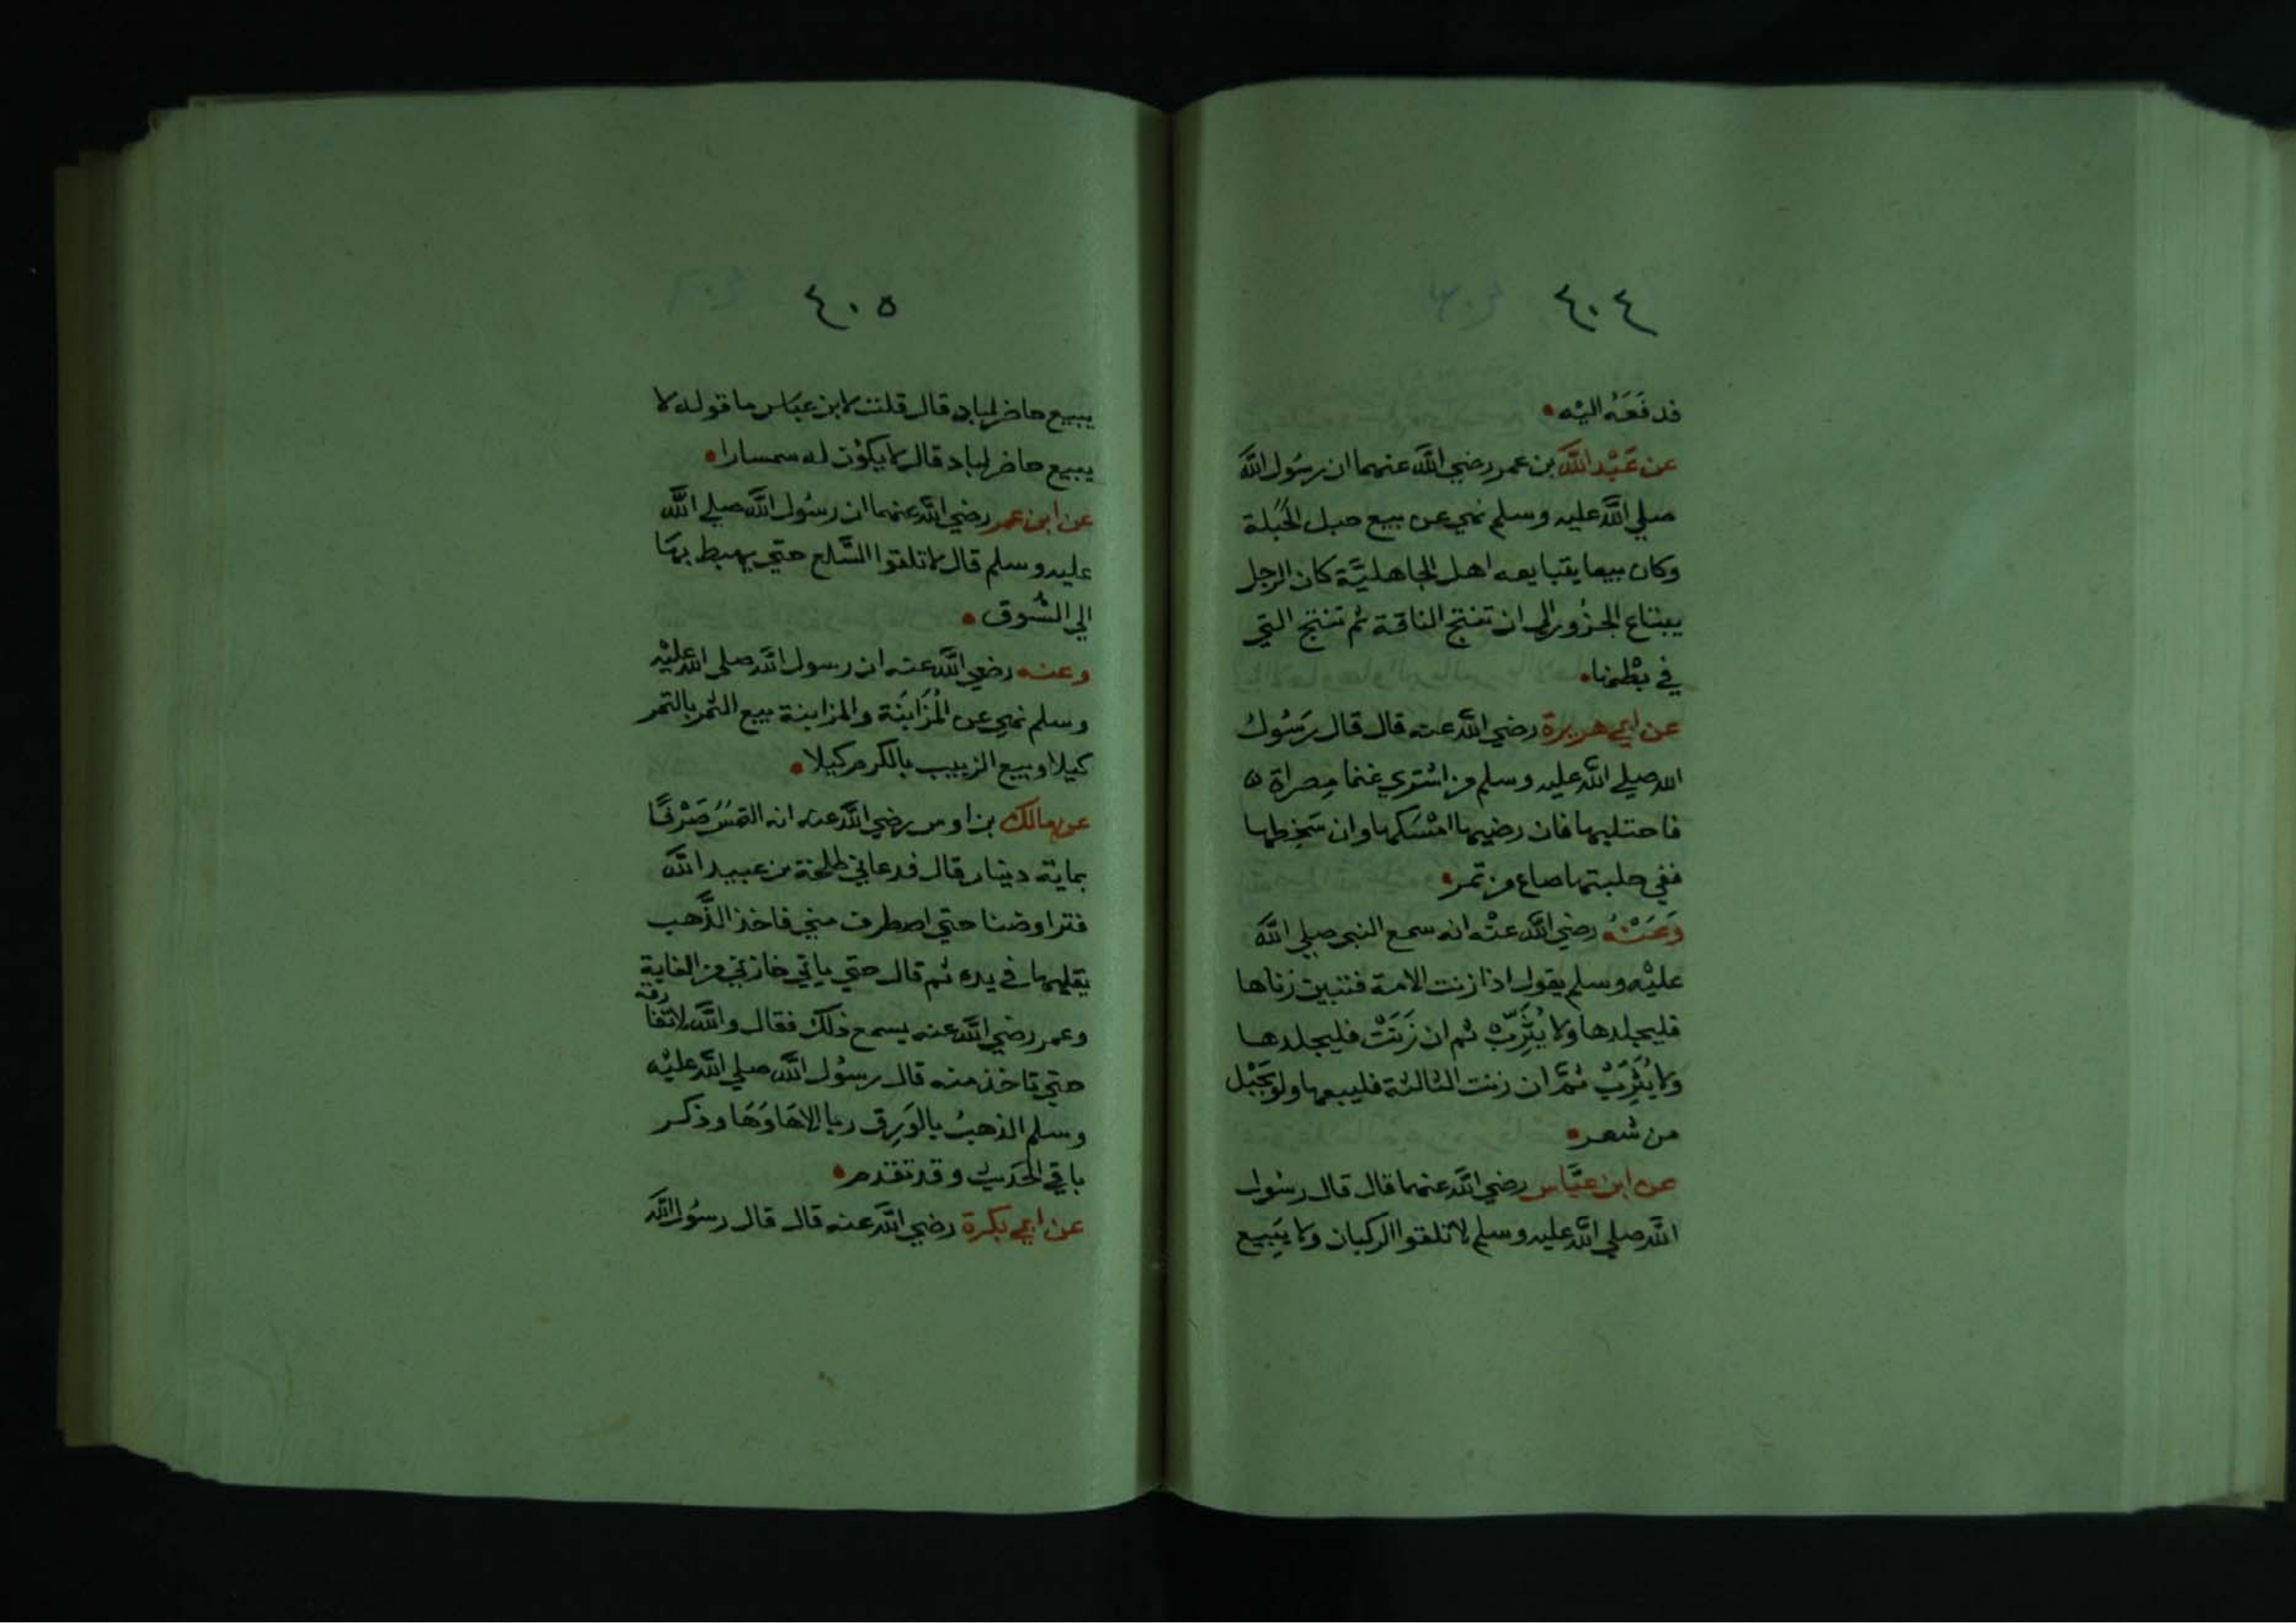 ٤٠٤
فدفَعَهُ اليْه
عن عَبْد اللَّه بن عمر رضي اللَّه عنهما ان رسُول اللَّه
صلي اللَّه عليه وسلم نهي عن بيع حبل الحُبَلة
وكان بيعا يتبايعه اهل الجاهليَّة كان الرجل
يبتاع الجزُور الي ان تنتج الناقة ثم تنتج التي
في بطْنها
عن ابي هريرة رضي اللَّه عنه قال قال رَسُول
الله صلي اللَّه عليه وسلم من اشتري غنما مصراة
فاحتلبها فان رضيها امْسَكها وان سَخِطها
ففي حلبتها صاع من تمر
وَعَنْهُ رضي اللَّه عنْه انه سمع النبي صلي اللَّه
عليْه وسلم يقول اذا زنت الامة فتبين زناها
فليجلدها ولا يُثَرِّبْ ثم ان زَنَتْ فليجلدها
ولا يُثَرِّبْ ثمَّ ان زنت الثالثة فليبعها ولو بحَبْل
من شعر
عن ابن عبَّاس رضي اللَّه عنهما قال قال رسُول
اللَّه صلي اللَّه عليه وسلم لا تلقوا الركبان ولا يَبِيع
٤٠٥
يبيع حاضر لباد قال قلت لابن عبَاس ما قوله لا
يبيع حاضر لباد قال لا يكوْن له سمسارا
عن ابن عمر رضي اللَّه عنهما ان رسُول اللَّه صلي اللَّه
عليه وسلم قال لا تلقوا السَّلع حتي يهبط بهَا
الي السُّوق
وعنه رضي اللَّه عنه ان رسول اللَّه صلي اللَّه عليْه
وسلم نهي عن المُزَابَنَة والمزابنة بيع الثمر بالتمر
كيلا وبيع الزبيب بالكرم كيلا
عن مالك بن اوس رضي اللَّه عنه انه التمسَ صَرْفًا
بماية دينار قال فدعاني طلحة بن عبيد اللَّه
فتراوضنا حتي اصطرف مني فاخذ الذَّهب
يقلبها في يده ثم قال حتي ياتي خازني من الغابة
وعمر رضي اللَّه عنه يسمع ذلك فقال واللَّه لا تفا رقه
حتي تاخذ منه قال رسوْل اللَّه صلي اللَّه عليْه
وسلم الذهبُ بالوَرِق ربا الا هَا وَهَا وذكر
باقي الحَديث وقد تقدم
عن ابي بكرة رضي اللَّه عنه قال قال رسُول اللَّه